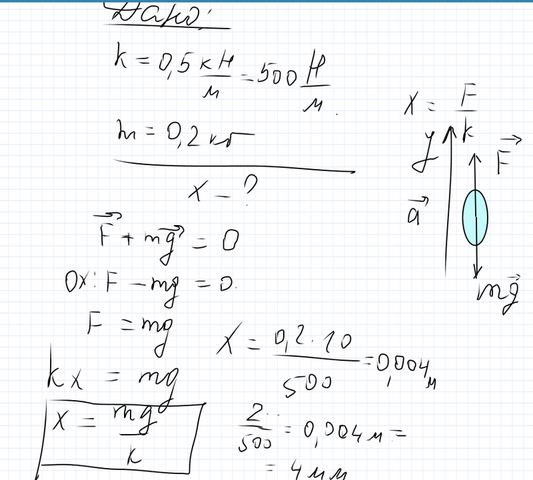 Дано:
k = 0,5 кН/м = 500 Н/м.
m = 0,2 кг
x – ?
F⃗ + mg⃗ = 0
0x: F – mg = 0.
F = mg
kx = mg
x = mg/k
x = F/k
y
F⃗
a⃗
mg⃗
x = 0,2 · 10 / 500 = 0,004 м
2/500 = 0,004 м =
= 4 мм